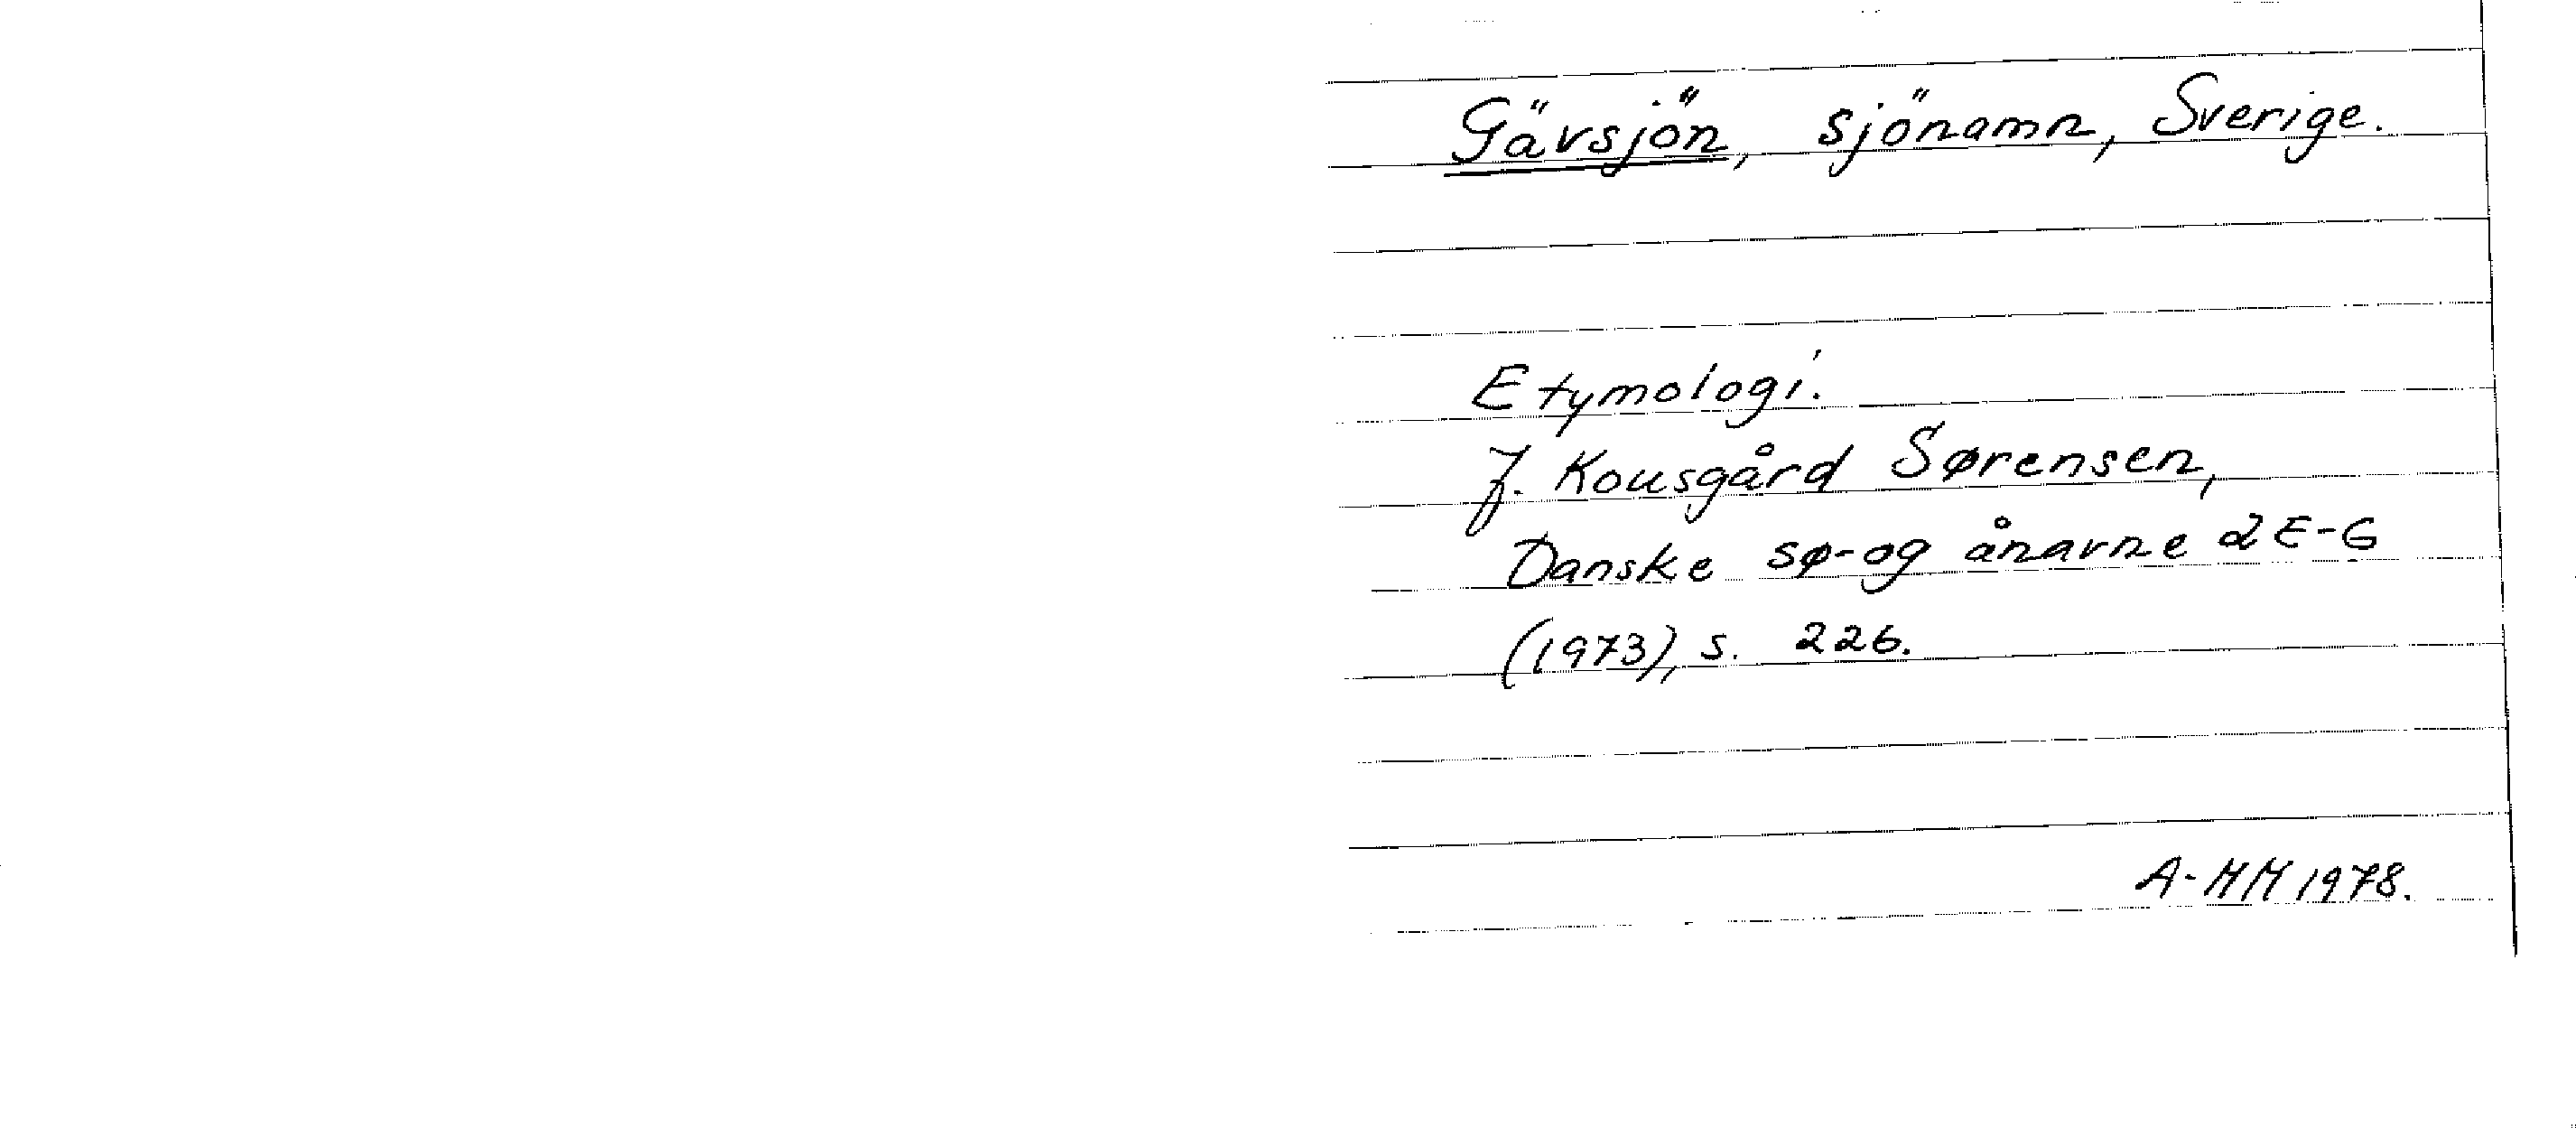 Gävsjön, sjönamn, Sverige.
Etymologi.
J. Kousgård Sørensen,
Danske sø- og ånavne 2 E-G
(1973), s. 226.
A-MM 1978.